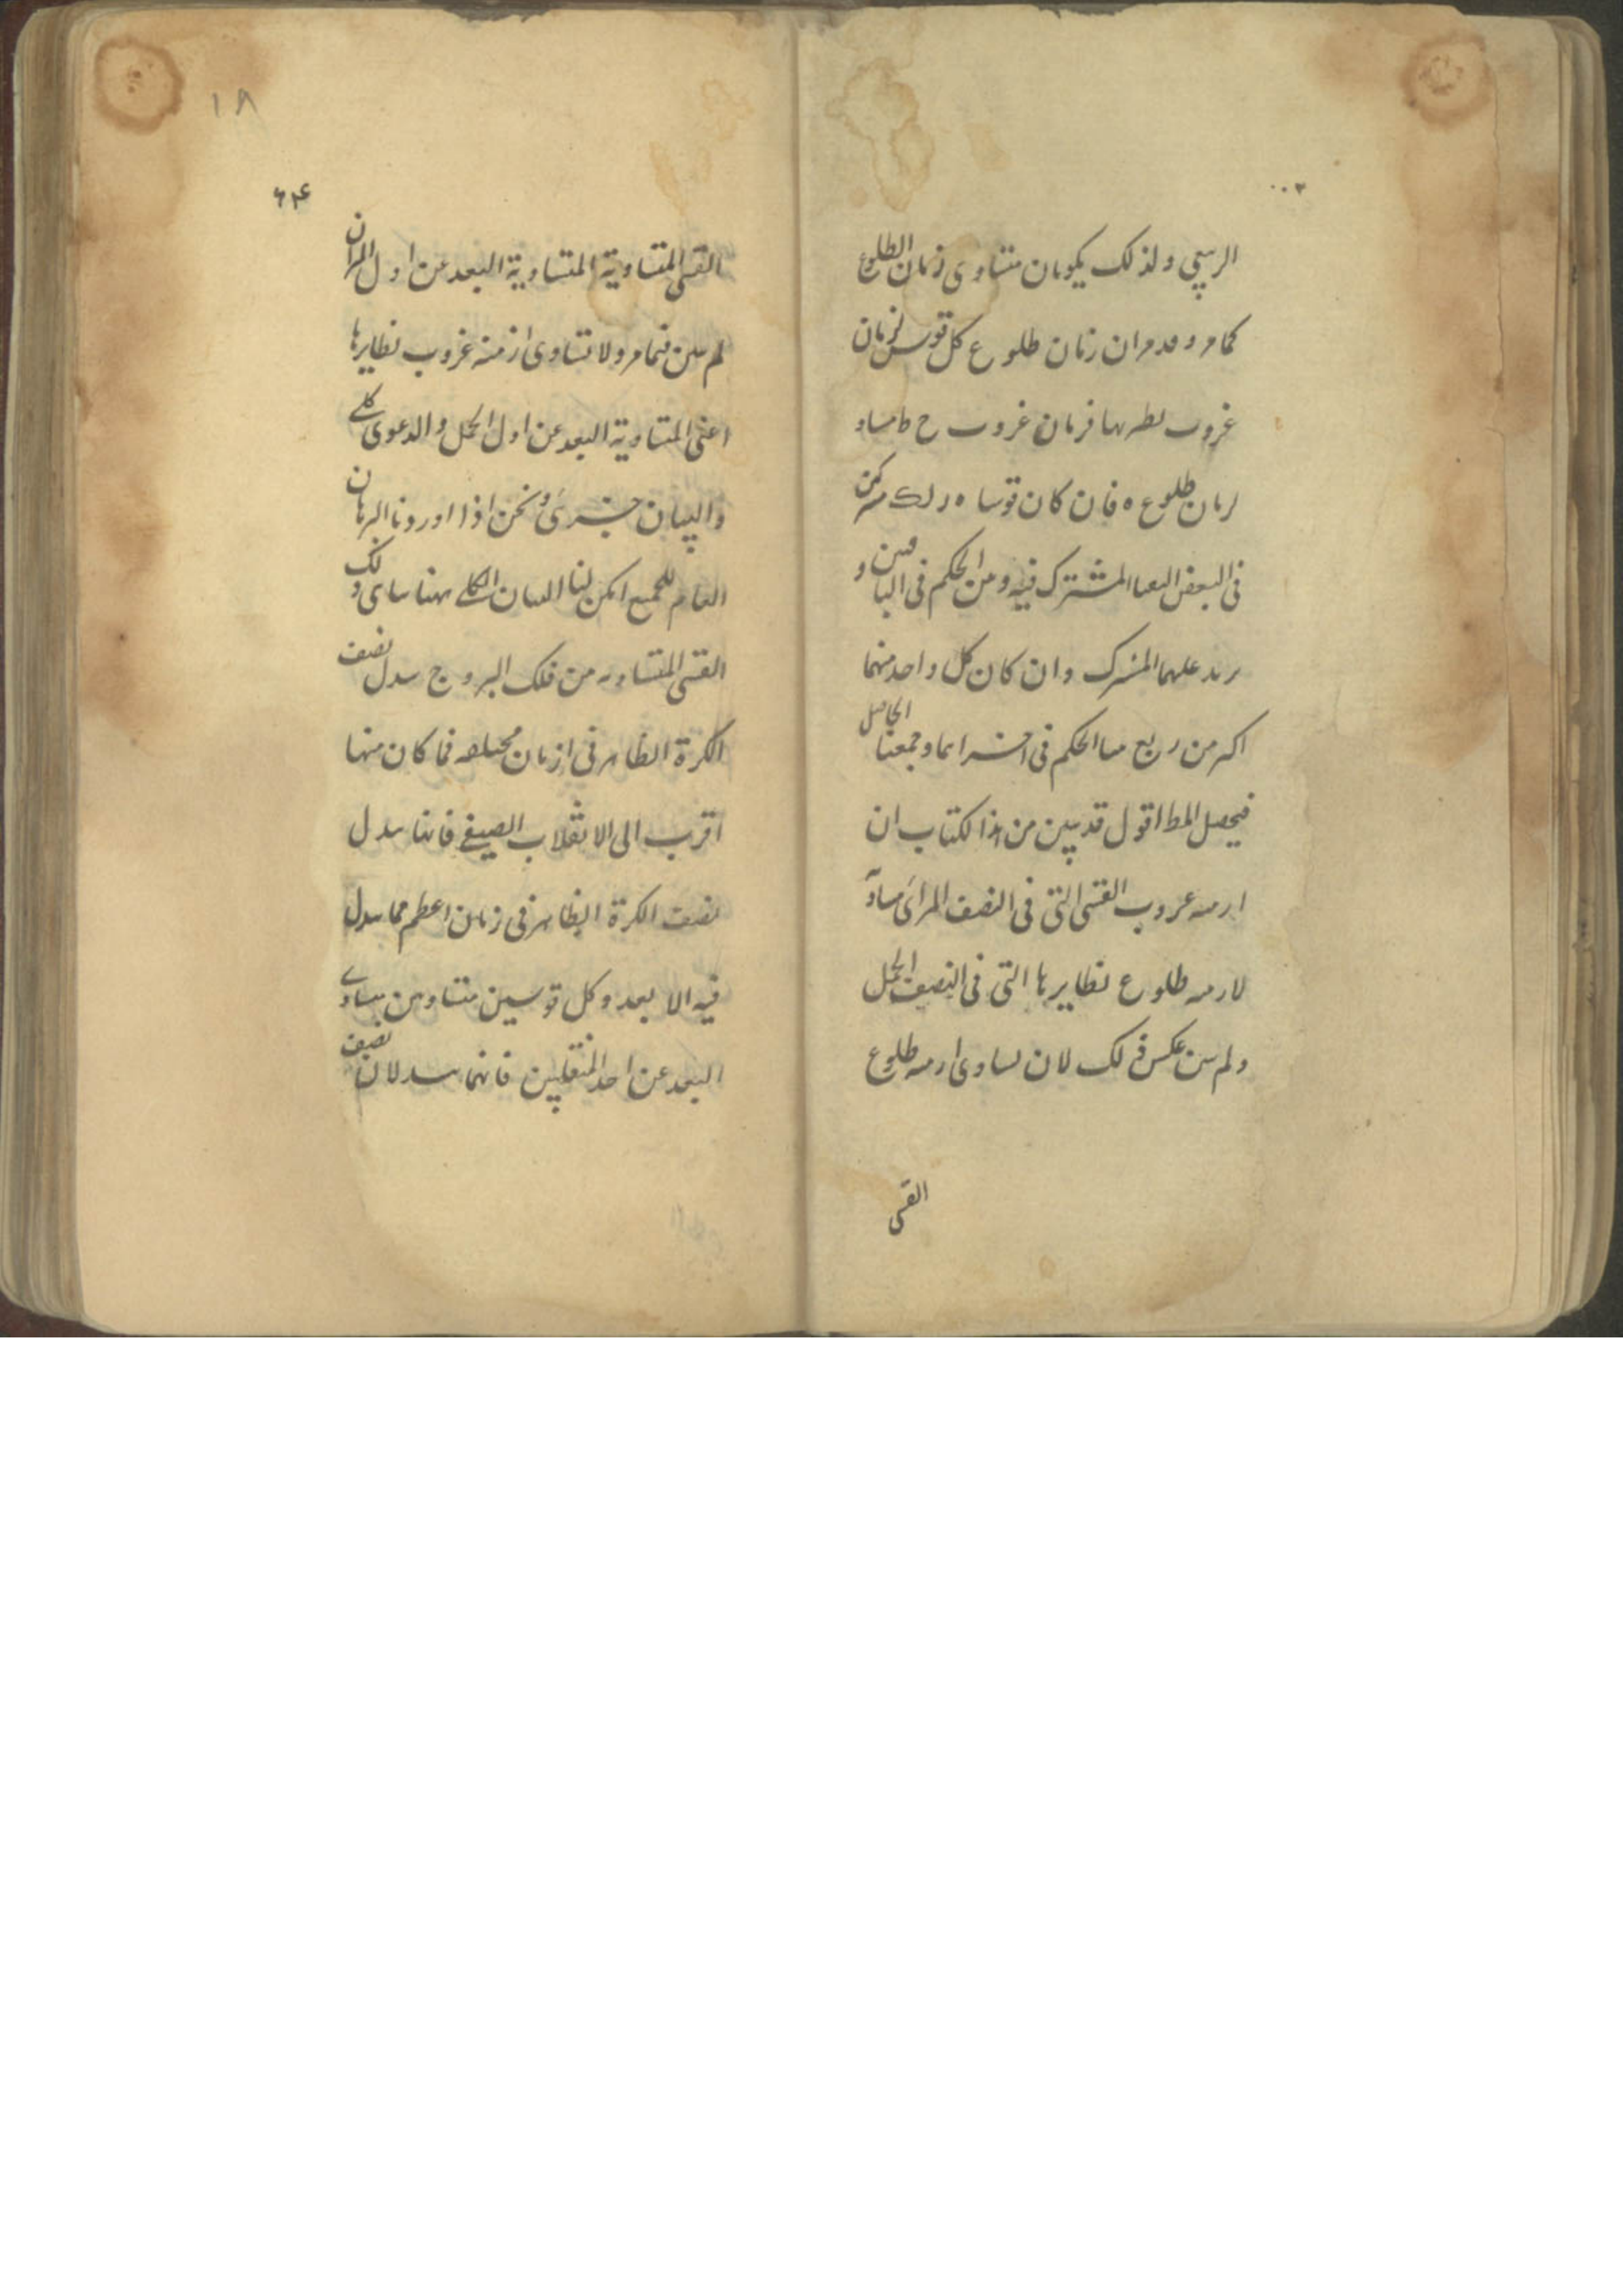 ۰۰۳
الربيعي ولذلك يكونان متساوى زمان الطلوع
كمامر وقدمر ان زمان طلوع كل قوس كزمان
غروب نظيرتها فزمان غروب ح ط مساو
لزمان طلوع ه فان كان قوسا مشتركتين
فى البعض المشترك فيه ومن الحكم فى الباقين و
نزيد عليهما المشترك وان كان كل واحد منهما
اكبر من ربع الحكم فى اجزائهما وجمعنا الحاصل
فيحصل المط اقول قد تبين من هذا لكتاب ان
ازمنه غروب القسى التى فى النصف المراى مساوية
لازمنه طلوع نظايرها التى فى النصف الحمل
ولم يبن عكس ذلك لان تساوى ازمنه طلوع
القسى
١٨
۶۴
القسى المتساوية المتساوية البعد عن اول الميزان
لم يبين فيمامر ولا تساوى ازمنة غروب نظايرها
اعنى المتساوية البعد عن اول الحمل والدعوى كلى
والبيان جزئى ونحن اذا اوردنا البرهان
العام للجميع امكن لنا البيان الكلى هنا وذلك
القسى المتساويه من فلك البروج تبدل نصف
الكرة الظاهر فى ازمان مختلفه فما كان منها
اقرب الى الانقلاب الصيفى فانها تبدل
نصف الكرة الظاهر فى زمان اعظم مما تبدل
فيه الابعد وكل قوسين متساويين متساوى
البعد عن احد المنقلبين فانهما تبدلان نصف